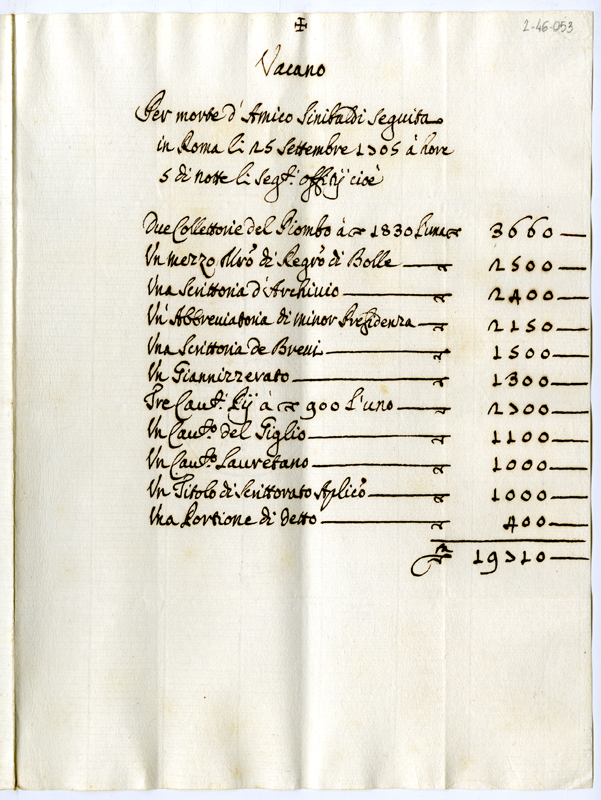 ✠
2-46-053
Vacano
Per morte d'Amico Sinibaldi seguita
in Roma li 25 Settembre 1705 à hore
5 di notte li segti. offitij cioè
Due Collettorie del Piombo à ▽ 1830 l'una ▽ 3660
Un mezzo Mro. di Regro. di Bolle ▽ 2500
Una Scrittoria d'Archivio ▽ 2400
Un' Abbreviatoria di minor Presidenza ▽ 2150
Una Scrittoria de Brevi ▽ 1500
Un Giannizzerato ▽ 1300
Tre Cavti. Pij à ▽ 900 l'uno ▽ 2700
Un Cavto. del Giglio ▽ 1100
Un Cavto. Lauretano ▽ 1000
Un Titolo di Scrittorato Aplico ▽ 1000
Una Portione di detto ▽ 400
▽ 19710